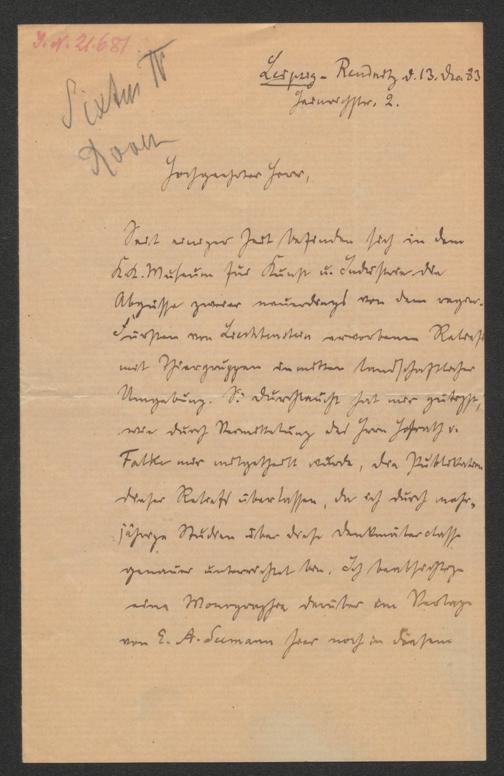 J. N. 21.681
Sixtus IV
Leipzig-Reudnitz d. 13. Dez. 83
str. 2.
Hochgeehrter Herr,
Seit einiger Zeit befinden sich in dem
K.K. Museum für Kunst u. Industrie die
Abgüsse zweier neuerdings von dem regier.
Fürsten von Liechtenstein erworbenen Reliefs
mit Thiergruppen inmitten landschaftlicher
Umgebung. S. Durchlaucht hat mir gütigst,
wie durch Vermittelung des Herrn Hofrath v.
Falke mir mitgetheilt wurde, die Publikation
dieser Reliefs überlassen, da ich durch mehr-
jährige Studien über diese Denkmälerclasse
genauer unterrichtet bin. Ich beabsichtige
eine Monographie darüber im Verlage
von E. A. Seemann hier noch in diesem